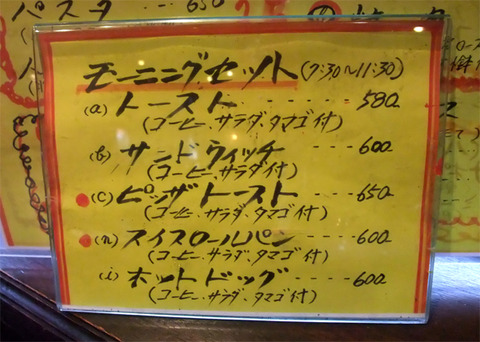 パスタ
モーニングセット (7:30~11:30)
(a) トースト --- 580
(コーヒー、サラダ、タマゴ付)
(b) サンドウィッチ --- 600
(コーヒー、サラダ付)
(c) ピザトースト --- 650
(コーヒー、サラダ、タマゴ付)
(n) スイスロールパン --- 600
(コーヒー、サラダ、タマゴ付)
(i) ホットドッグ --- 600
(コーヒー、サラダ、タマゴ付)